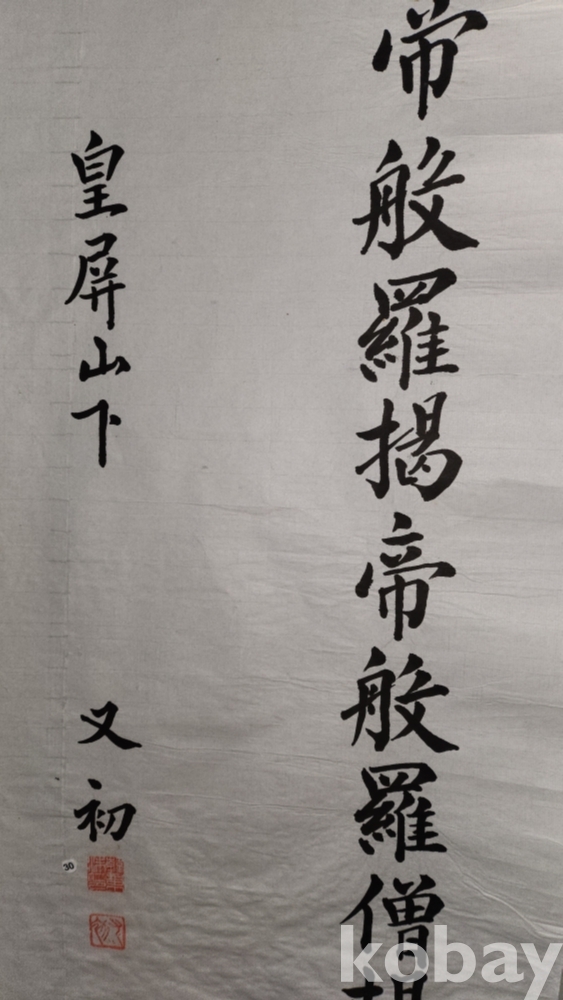 帝般羅揭帝般羅僧揭
皇屏山下 又初
30
kobay